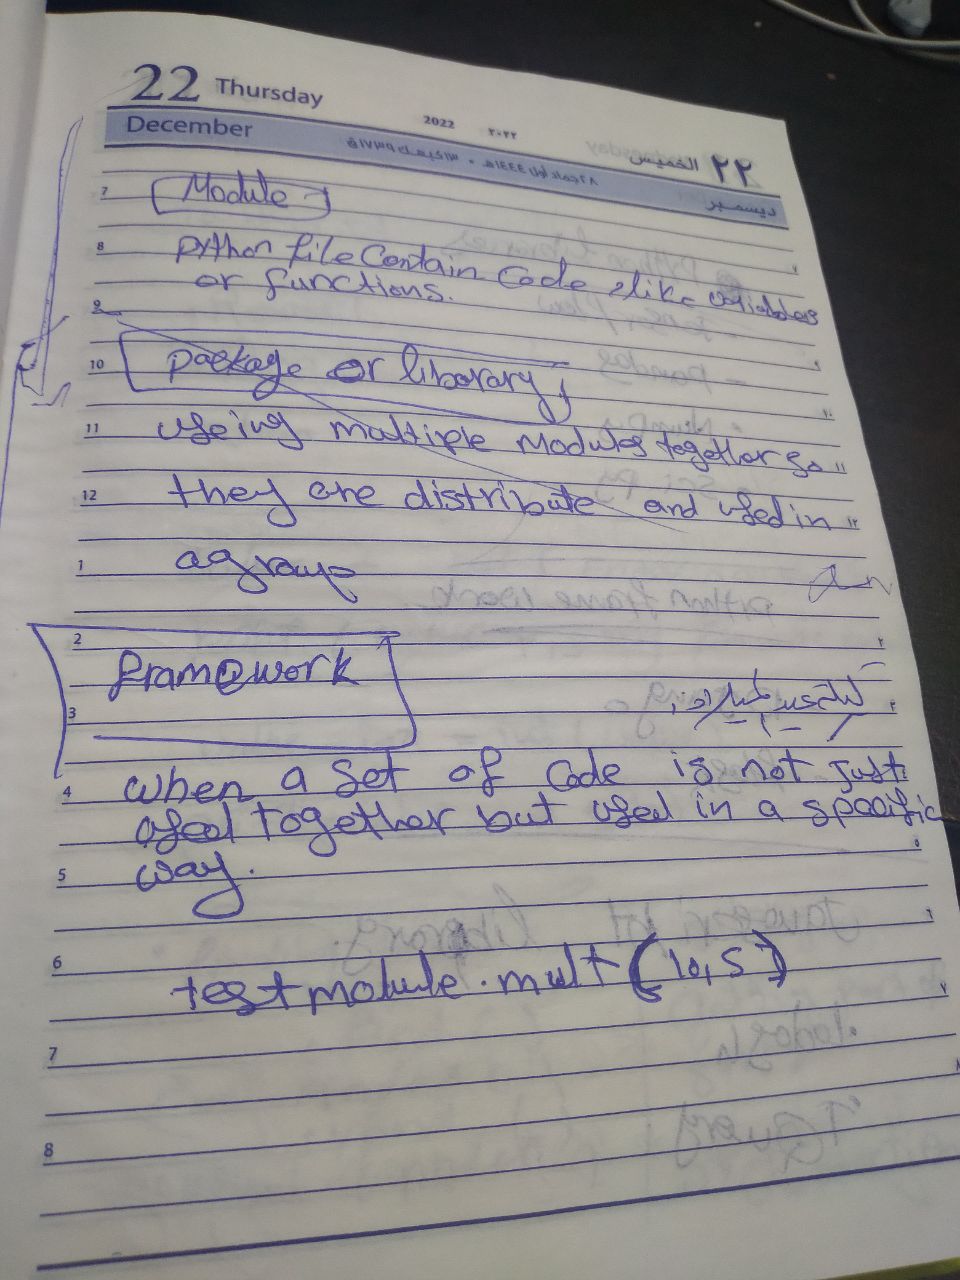 22 Thursday
2022 ٢٠٢٢
الخميس ٢٢
December
ديسمبر
7 Module
8 python file Contain Code like variables
or functions.
9
10 package or liborary
11 useing multiple modules together so ١١
12 they are distribute and used in ١٢
1 a group
2 ٢
framework
3 ٣
4 when a set of Code is not just
used together but used in a specific
5 way. ٥
٦
6 testmodule.mult(10,5) ٧
7
٨
8